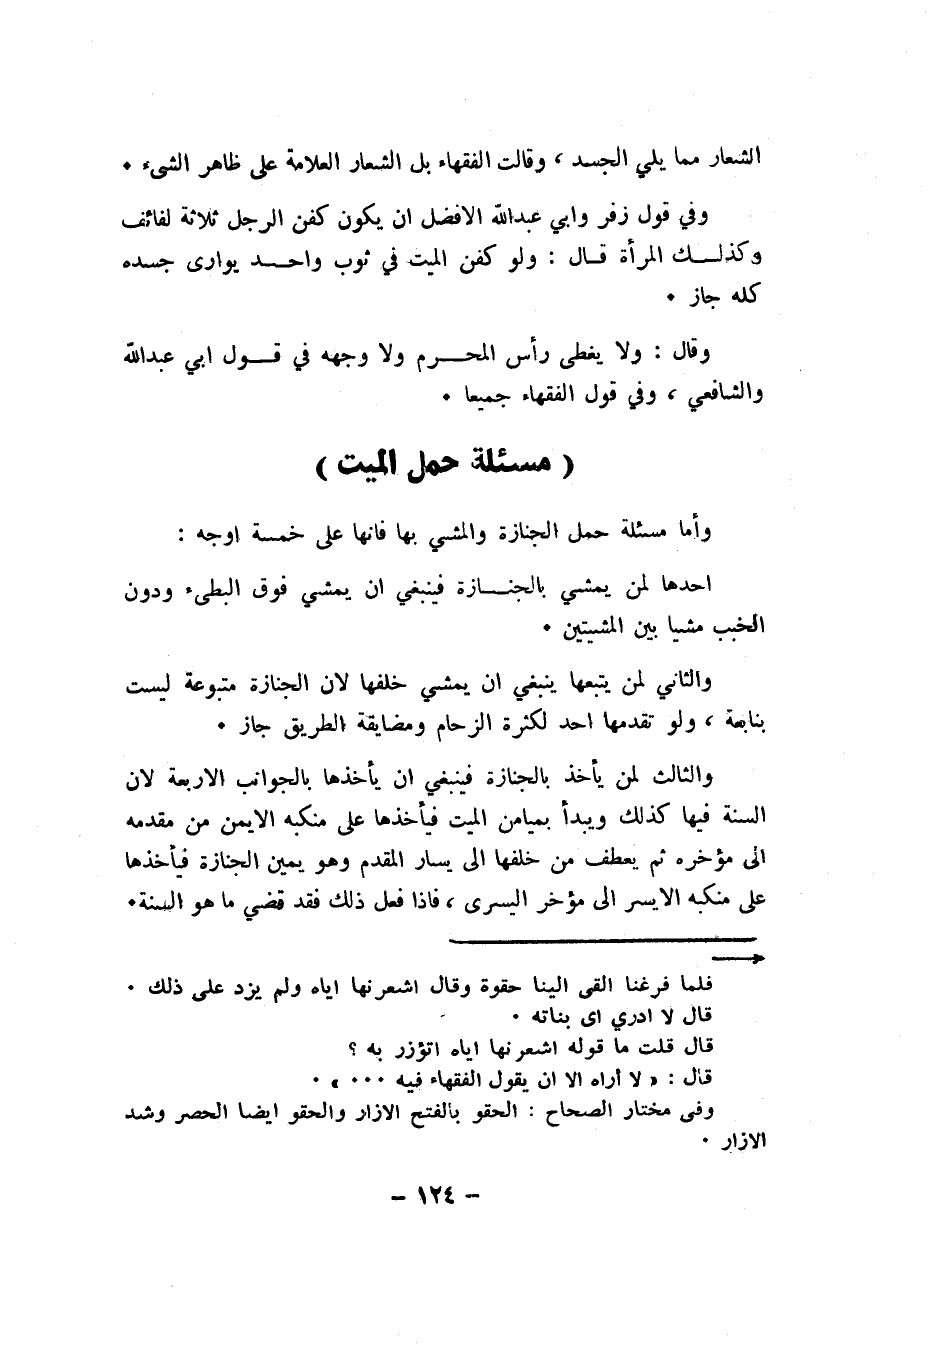 الشعار مما يلي الجسد ، وقالت الفقهاء بل الشعار العلامة على ظاهر الشىء ٠
وفي قول زفر وابي عبدالله الافضل ان يكون كفن الرجل ثلاثة لفائف
وكذلــك المرأة قــال : ولو كفن الميت في ثوب واحــد يوارى جسده
كله جاز ٠
وقال : ولا يغطى رأس المحــرم ولا وجهه في قــول ابي عبدالله
والشافعي ، وفي قول الفقهاء جميعا ٠
( مسئلة حمل الميت )
وأما مسئلة حمل الجنازة والمشي بها فانها على خمسة اوجه :
احدها لمن يمشي بالجنــازة فينبغي ان يمشي فوق البطىء ودون
الخبب مشيا بين المشيتين ٠
والثاني لمن يتبعها ينبغي ان يمشي خلفها لان الجنازة متبوعة ليست
بتابعة ، ولو تقدمها احد لكثرة الزحام ومضايقة الطريق جاز ٠
والثالث لمن يأخذ بالجنازة فينبغي ان يأخذها بالجوانب الاربعة لان
السنة فيها كذلك ويبدأ بميامن الميت فيأخذها على منكبه الايمن من مقدمه
الى مؤخره ثم يعطف من خلفها الى يسار المقدم وهو يمين الجنازة فيأخذها
على منكبه الايسر الى مؤخر اليسرى ، فاذا فعل ذلك فقد قضي ما هو السنة٠
فلما فرغنا القى الينا حقوة وقال اشعرنها اياه ولم يزد على ذلك ٠
قال لا ادري اى بناته ٠
قال قلت ما قوله اشعرنها اياه اتؤزر به ؟
قال : « لا أراه الا ان يقول الفقهاء فيه ٠٠٠ » ٠
وفى مختار الصحاح : الحقو بالفتح الازار والحقو ايضا الحصر وشد
الازار ٠
- ١٢٤ -